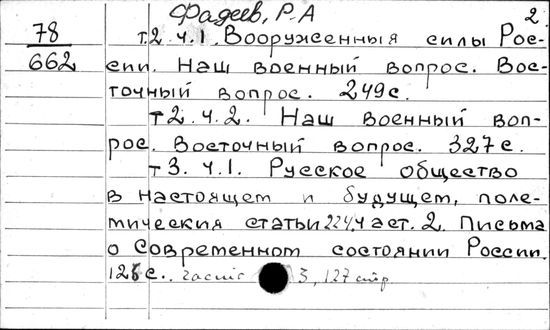 Фадеев, Р.А 2
78
662
т.2 ч.1. Вооруженныя силы Рос-
сии. Наш военный вопрос. Вос-
точный вопрос. 249 с.
т 2. ч. 2. Наш военный воп-
рос. Восточный вопрос. 327 с.
т 3. ч.1. Русское общество
в настоящем и будущем, поле-
мическия статьи 224, част. 2. Письма
о современном состоянии России.
с. 3, 127 стр.